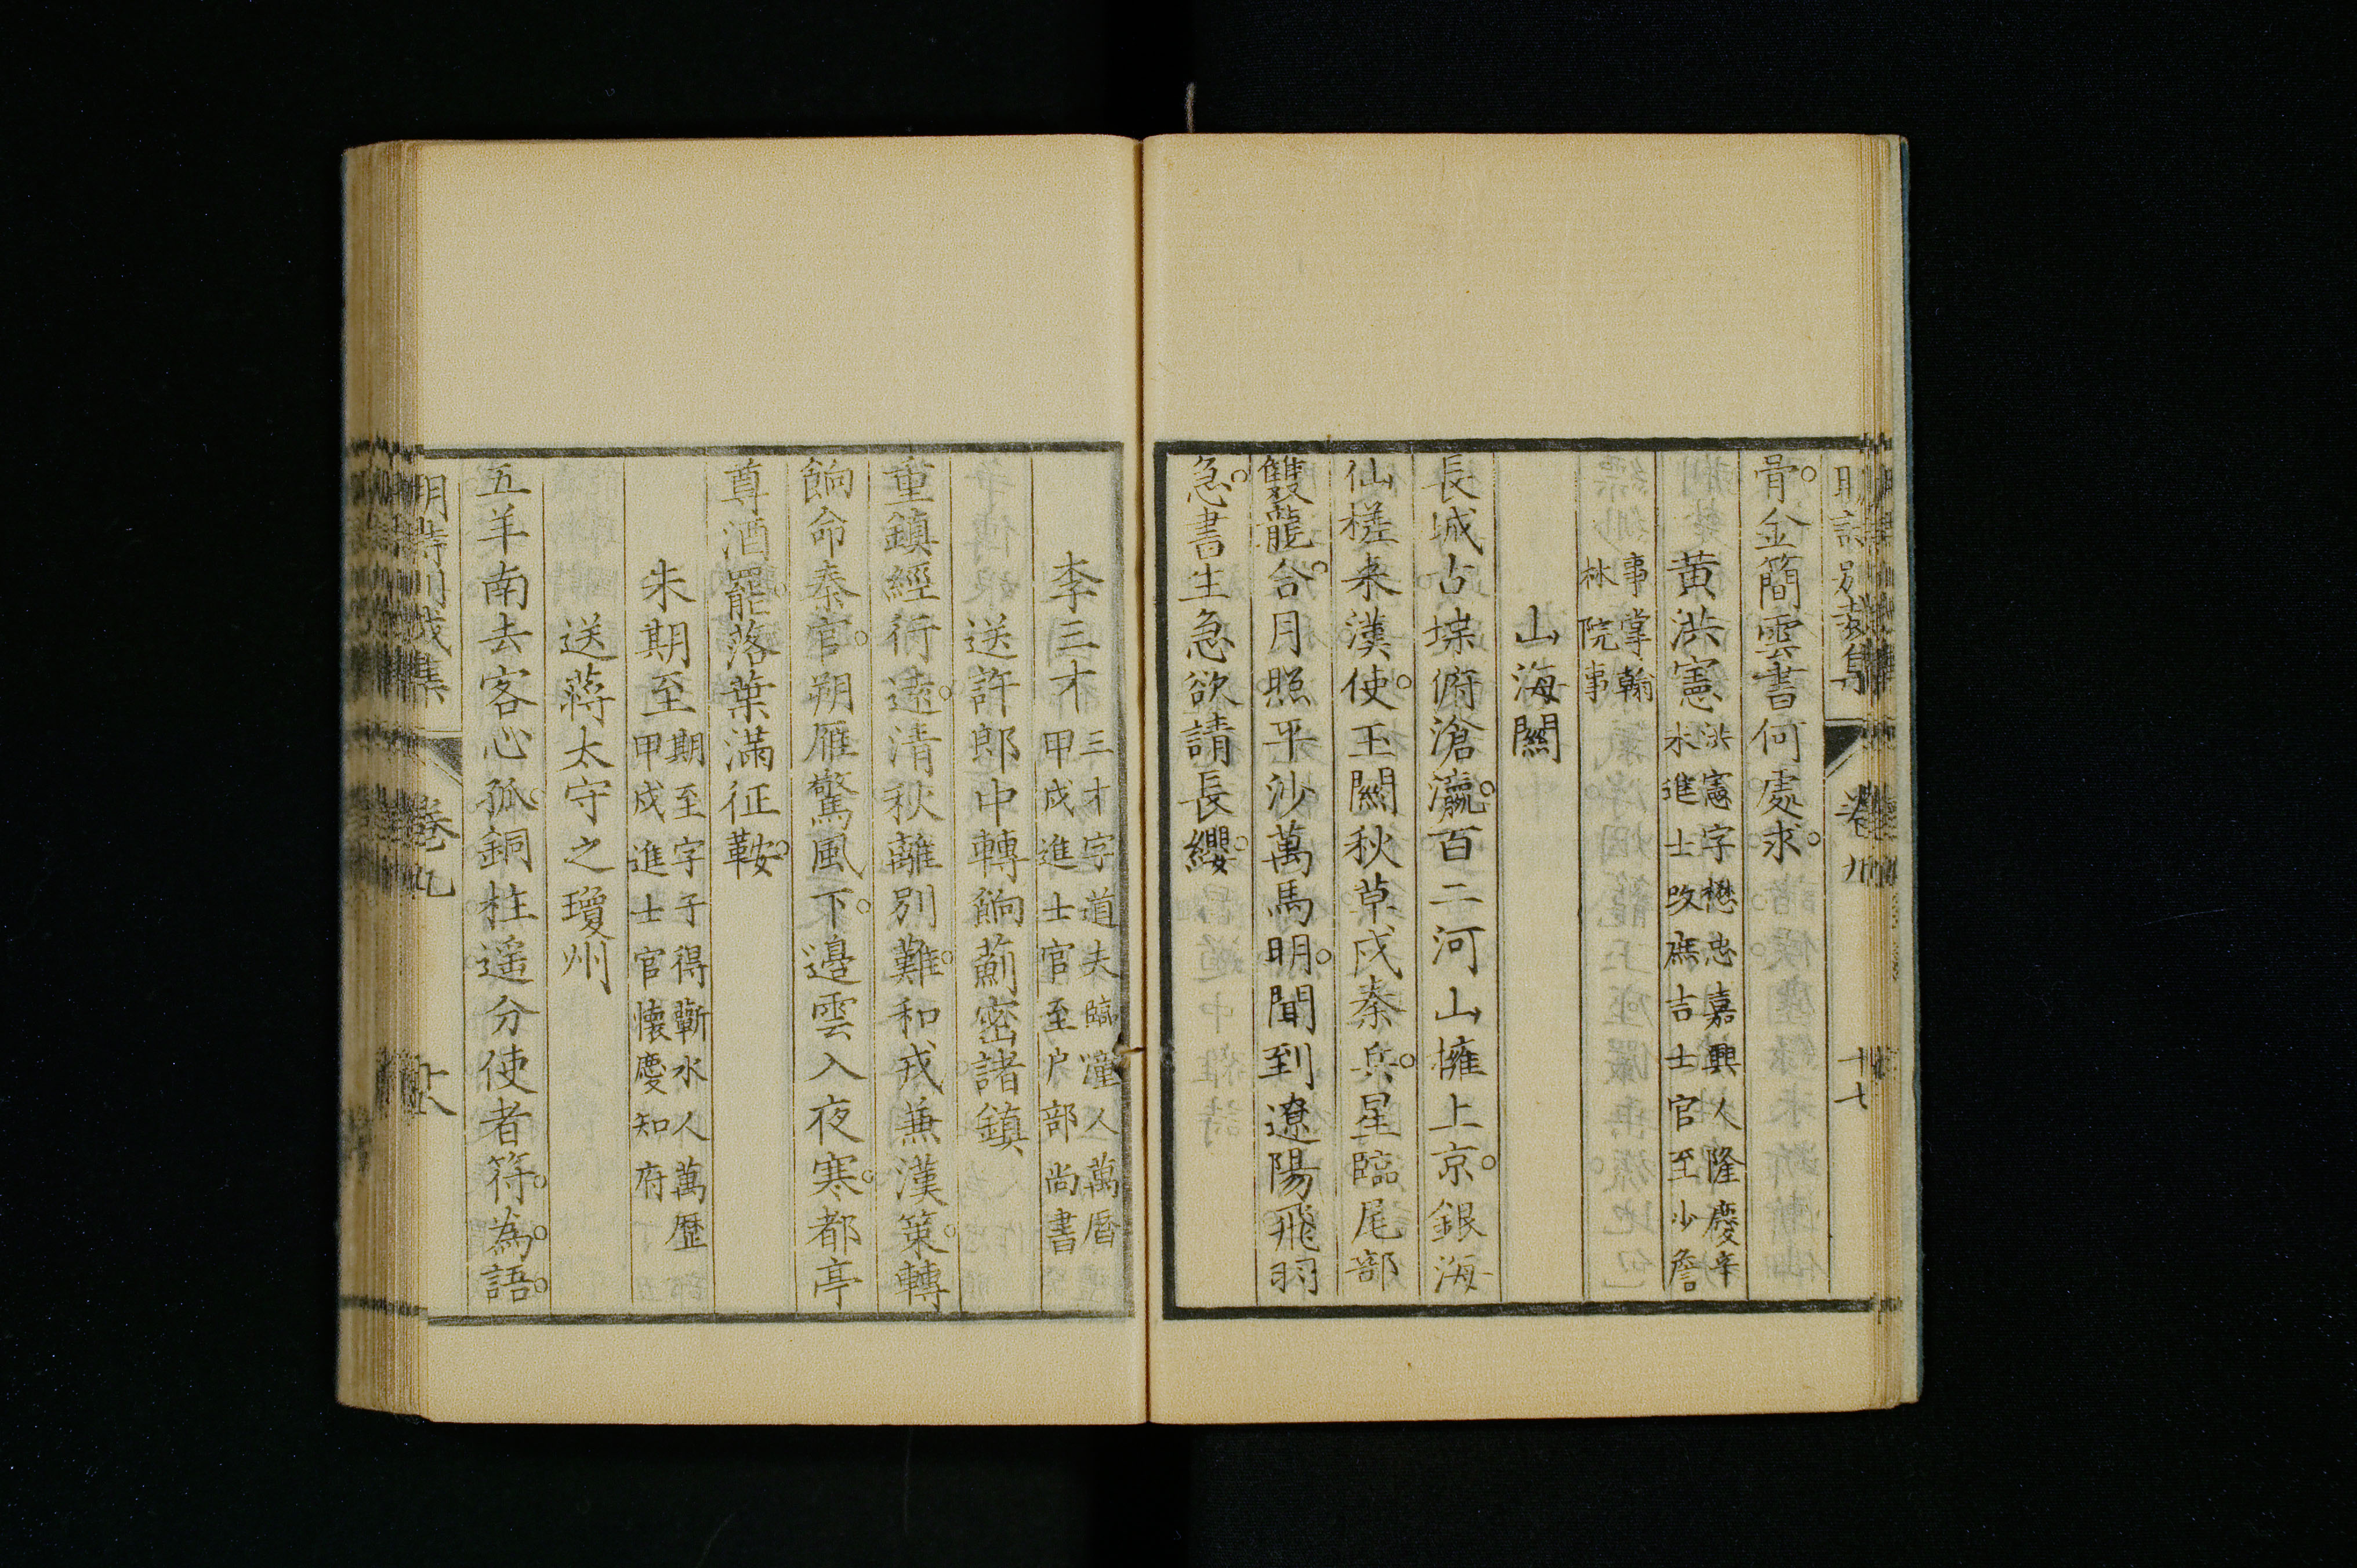 骨金簡雲書何處求
黄洪憲
洪憲字懋忠嘉興人隆慶辛
未進士改庶吉士官至少詹
事掌翰
林院事
山海關
長城古堞俯滄瀛百二河山擁上京銀海
仙槎来漢使玉關秋草戍秦兵星臨尾部
雙龍合月照平沙萬馬明聞到遼陽飛羽
急書生急欲請長纓
李三才
三才字道夫臨潼人萬曆
甲戌進士官至户部尚書
送許郎中轉餉薊密諸鎮
重鎮經行遠清秋離別難和戎兼漢策轉
餉命秦官朔雁驚風下邉雲入夜寒都亭
尊酒罷落葉滿征鞍
朱期至
期至字子得蘄水人萬歷
甲戌進士官懷慶知府
送蔣太守之瓊州
五羊南去客心孤銅柱遥分使者符為語
卷九